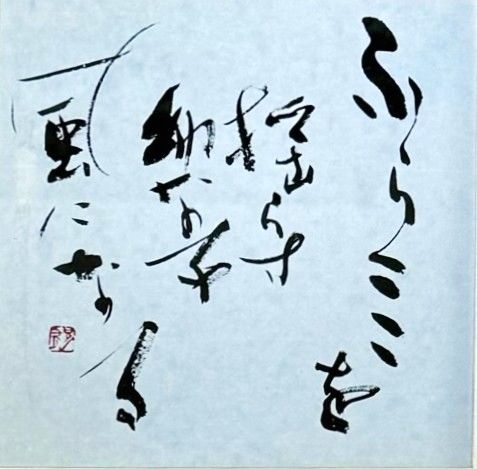 ふらここを
揺らす
幼な子
風になる